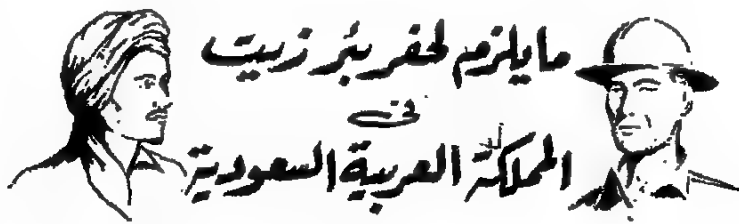 ما يلزم لحفر بئر زيت
في
المملكة العربية السعودية